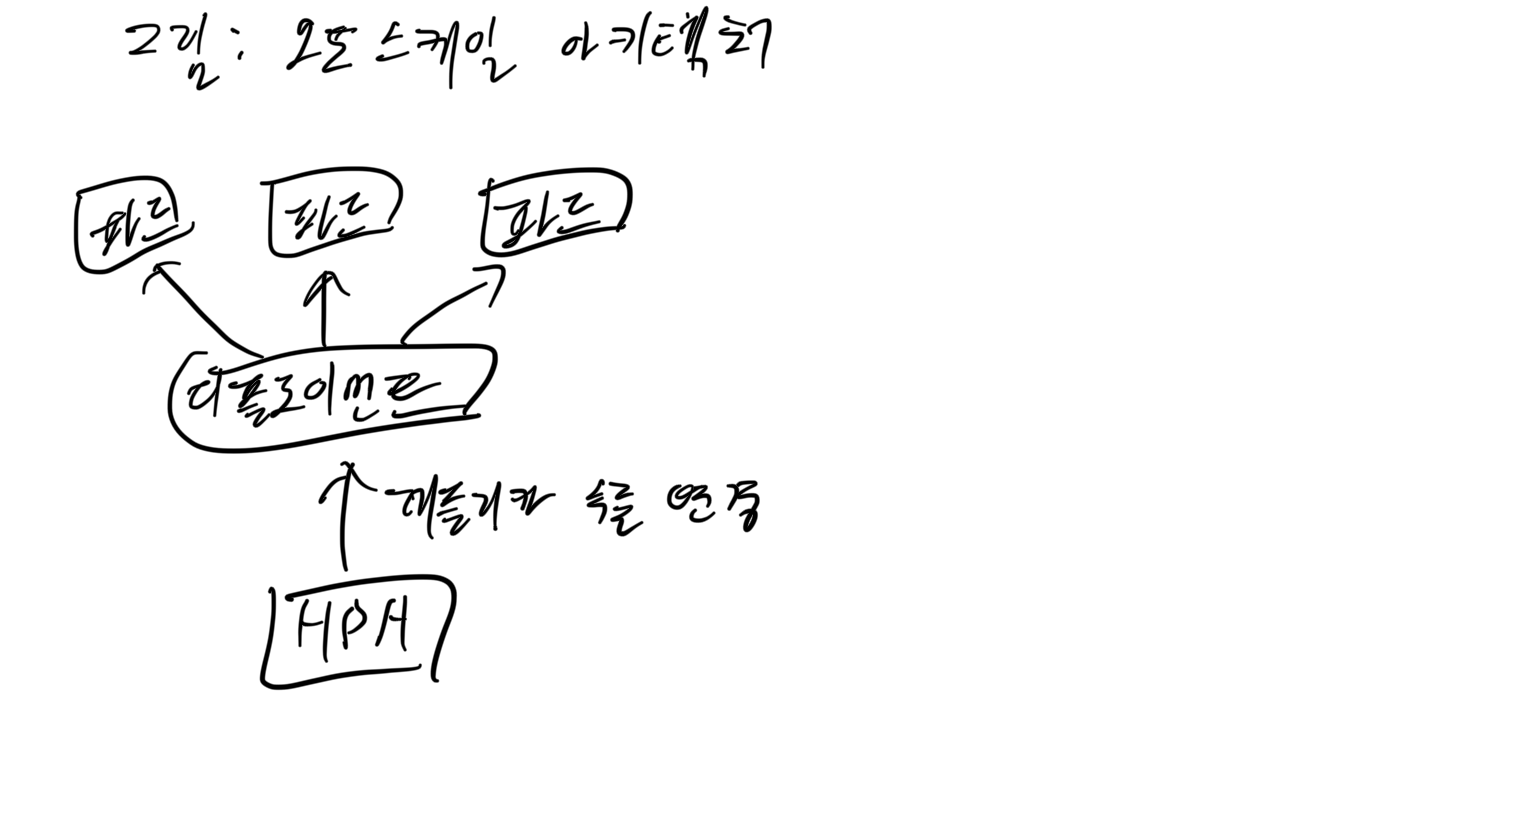 그림: 오토스케일 아키텍처
파드 파드 파드
디플로이먼트
레플리카 수를 변경
HPA